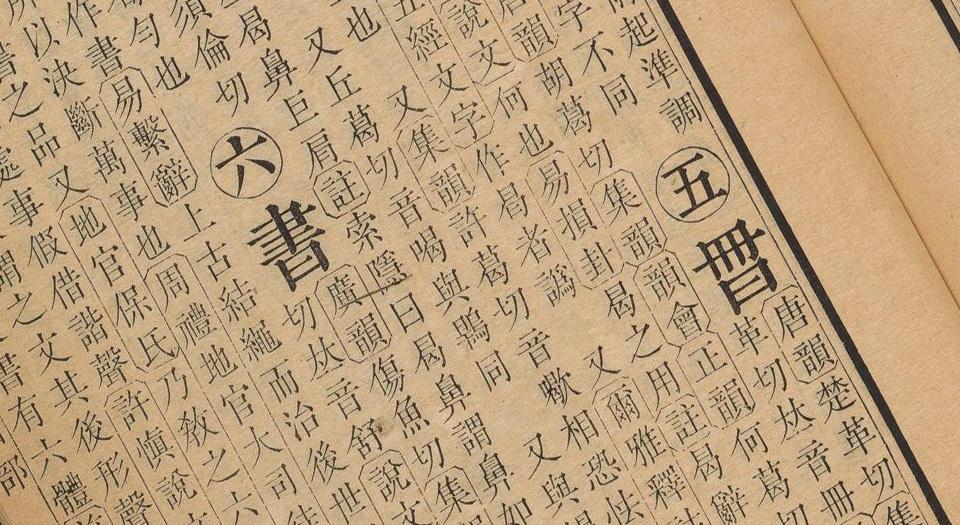 起準調 五 㬱 唐韻楚革切集
字不同 革切𠀤音冊
唐韻胡葛切集韻韻會正韻何葛切
說文何也易損卦曷之用註曷辭
經文字作曷者譌 又爾雅釋
又集韻許葛切音歇相恐怯
也 又丘葛切音喝與鶡同 又與
曷鼻巨肩註索隱曰曷鼻謂鼻如
倫切 六 書 廣韻傷魚切集
勻也 切𠀤音舒說文
作書易繫辭上古結繩而治後世
以決斷萬事也周禮地官大司徒
之品又地官保氏乃敎之六
事假借諧聲許愼說
之文其後形聲
書有六體
部